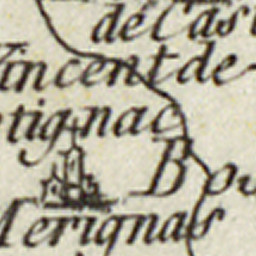 de Cas
Vincent de
tignac
Bo
Merignas